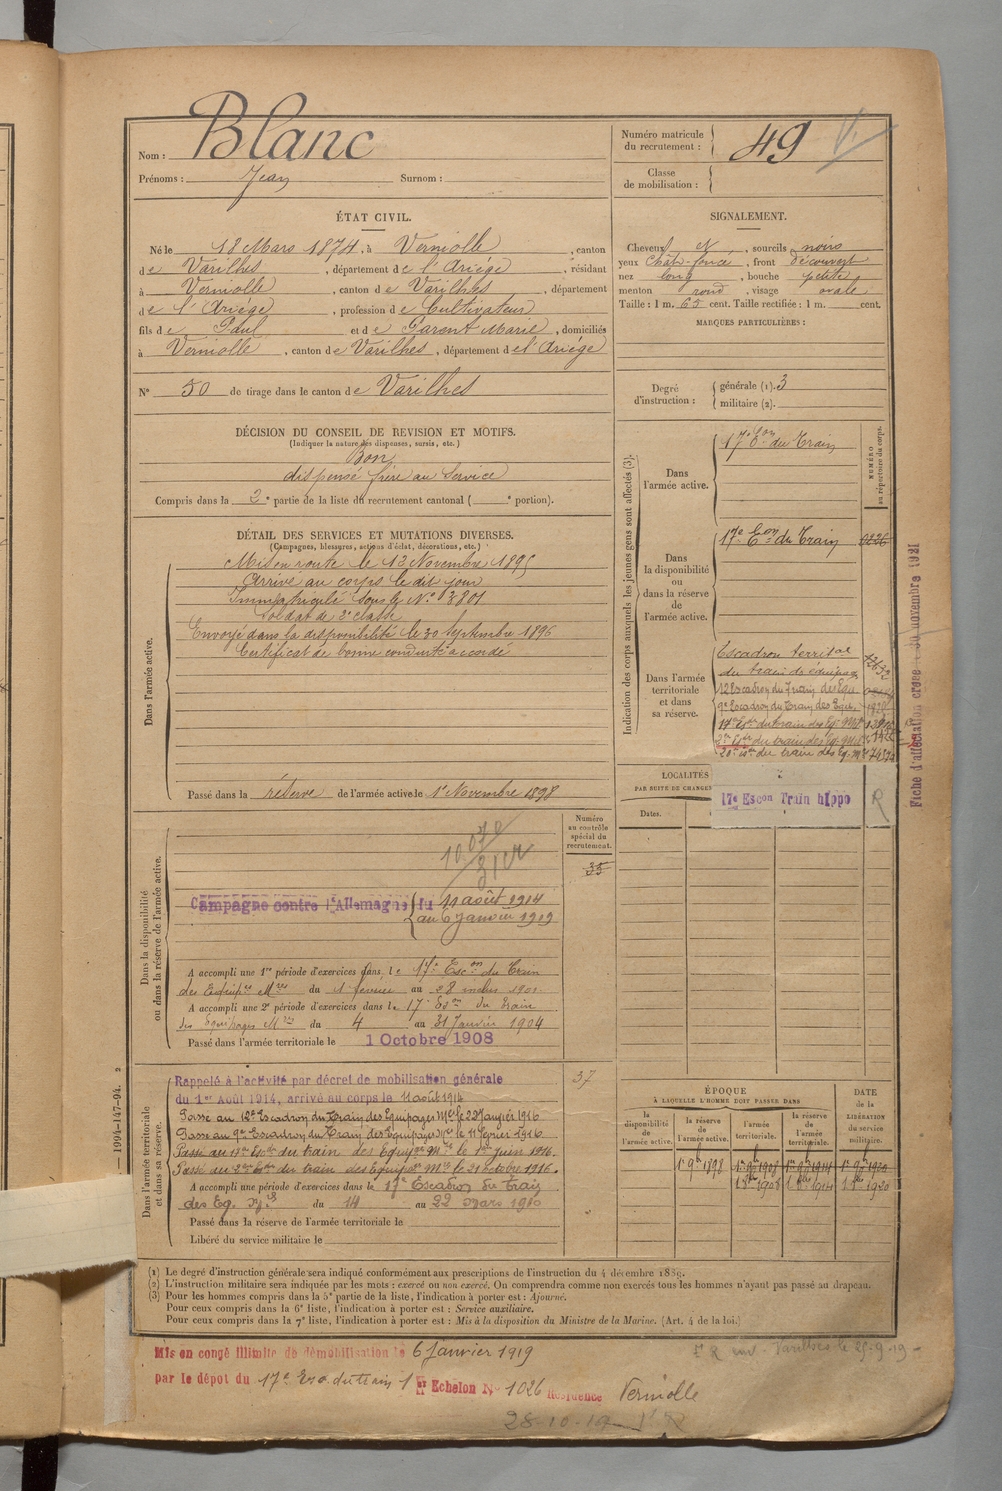 Nom : Blanc
Prénoms : Jean Surnom :
Numéro matricule du recrutement : 49
Classe de mobilisation :
ÉTAT CIVIL.
Né le 18 Mars 1874, à Verniolle, canton
de Varilhes, département de l'Ariége, résidant
à Verniolle, canton de Varilhes, département
de l'Ariége, profession de Cultivateur
fils de Paul et de Parent Marie, domiciliés
à Verniolle, canton de Varilhes, département de l'Ariége
N° 50 de tirage dans le canton de Varilhes
SIGNALEMENT.
Cheveux N, sourcils noirs
yeux Chât-foncé, front découvert
nez long, bouche petite
menton rond, visage ovale
Taille : 1 m. 65 cent. Taille rectifiée : 1 m. cent.
MARQUES PARTICULIÈRES :
Degré d'instruction : générale (1). 3
militaire (2).
DÉCISION DU CONSEIL DE REVISION ET MOTIFS.
(Indiquer la nature des dispenses, sursis, etc.)
Bon
dispensé frère au Service
Compris dans la 2e partie de la liste du recrutement cantonal ( e portion).
DÉTAIL DES SERVICES ET MUTATIONS DIVERSES.
(Campagnes, blessures, actions d'éclat, décorations, etc.)
Dans l'armée active.
Mis en route le 13 Novembre 1895
Arrivé au corps le dit jour
Immatriculé sous le N° 3801
Soldat de 2e classe
Envoyé dans la disponibilité le 30 Septembre 1896
Certificat de bonne conduite accordé
Passé dans la réserve de l'armée active le 1er Novembre 1898
Indication des corps auxquels les jeunes gens sont affectés (3).
NUMÉRO au répertoire du corps.
Dans l'armée active.
17e Eon du Train
Dans la disponibilité ou dans la réserve de l'armée active.
17e Eon du Train
Dans l'armée territoriale et dans sa réserve.
Escadron territal
du train des équipag
12 Escadron du Train des Equ
9e Escadron du Train des Equi.
20e du train des Eq. M
LOCALITÉS
PAR SUITE DE CHANGE
17e Escon Train hippo R
Dates.
Fiche d'affectation créée 30 novembre 1921
Dans la disponibilité ou dans la réserve de l'armée active.
Numéro au contrôle spécial du recrutement.
35
Campagne contre l'Allemagne du 11 août 1914
au 6 janvier 1919
A accompli une 1re période d'exercices dans le 17e Escon du Train
des Equipges Mres du 1 février au 28 mars 1901
A accompli une 2e période d'exercices dans le 17e Eson du Train
des Equipages Mres du 4 au 31 Janvier 1904
Passé dans l'armée territoriale le 1 Octobre 1908
Dans l'armée territoriale et dans sa réserve.
37
Rappelé à l'activité par décret de mobilisation générale
du 1er Août 1914, arrivé au corps le 11 août 1914
Passé au 12e Escadron du Train des Equipages Mres le 22 Janvier 1916
Passé au 9e Escadron du Train des Equipages Mres le 11 février 1916
Passé au du train des Equipes Mres le 1er juin 1916.
Passé au du train des Equipes Mres le 21 octobre 1916.
A accompli une période d'exercices dans le 17e Escadron du Train
des Eq. Mres du 14 au 22 Mars 1910
Passé dans la réserve de l'armée territoriale le
Libéré du service militaire le
ÉPOQUE
À LAQUELLE L'HOMME DOIT PASSER DANS
la disponibilité de l'armée active.
la réserve de l'armée active.
l'armée territoriale.
la réserve de l'armée territoriale.
DATE de la LIBÉRATION du service militaire.
1er 9bre 1898
1er 9bre 1908
1er 9bre 1914
1er 9bre 1920
1er 8bre 1908
1er 8bre 1914
1er 8bre 1920
1994-147-94. 2
(1) Le degré d'instruction générale sera indiqué conformément aux prescriptions de l'instruction du 4 décembre 1889.
(2) L'instruction militaire sera indiquée par les mots : exercé ou non exercé. On comprendra comme non exercés tous les hommes n'ayant pas passé au drapeau.
(3) Pour les hommes compris dans la 5e partie de la liste, l'indication à porter est : Ajourné.
Pour ceux compris dans la 6e liste, l'indication à porter est : Service auxiliaire.
Pour ceux compris dans la 7e liste, l'indication à porter est : Mis à la disposition du Ministre de la Marine. (Art. 4 de la loi.)
Mis en congé illimité de démobilisation le 6 janvier 1919
par le dépot du 17e Esc. du train 1er Echelon N° 1026 Résidence Verniolle
Varilhes le 25-9-19
28-10-19